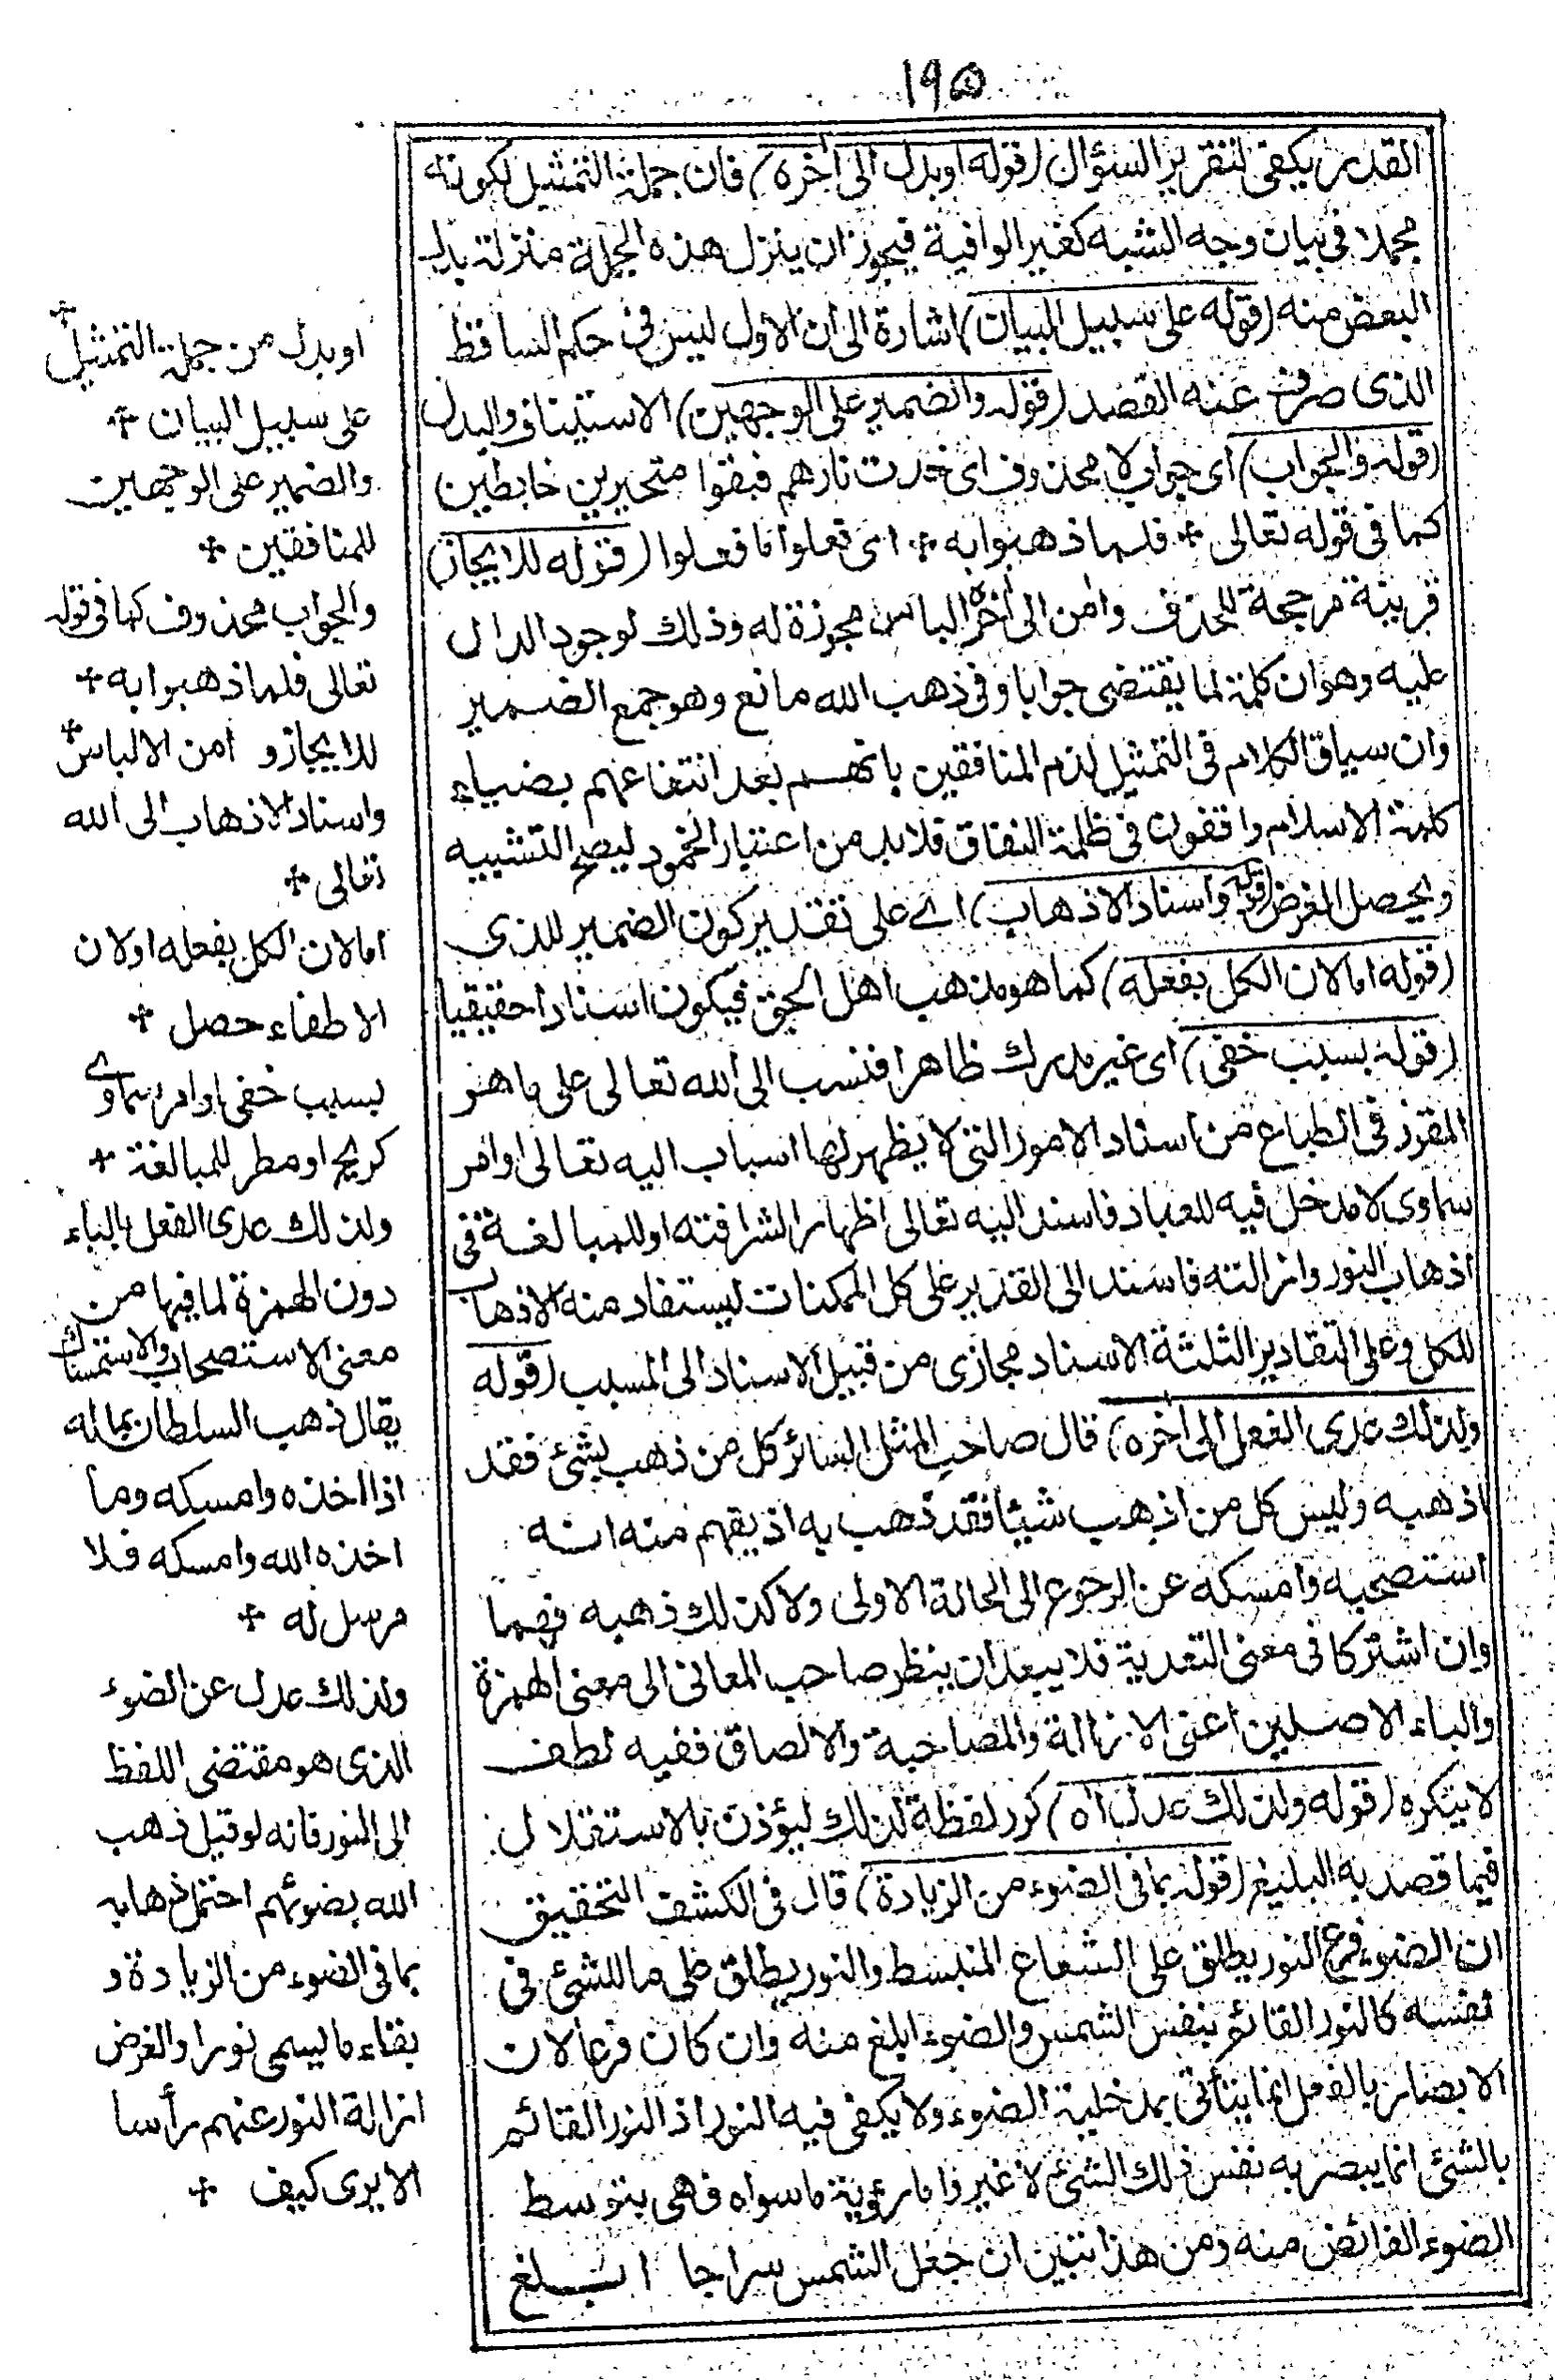 ١٩٥
القدر يكفى لتقرير السؤال (قوله او بدل الى اخره) فان جملة التمثيل لكونه
مجملا فى بيان وجه الشبه كغير الوافية فيجوز ان ينزل هذه الجملة منزلة بدل
البعض منه (قوله على سبيل البيان) اشارة الى ان الاول ليس فى حكم الساقط
الذى صرف عنه القصد (قوله والضمير على الوجهين) الاستيناف والبدل
(قوله والجواب) اى جواب لما محذوف اى خمدت نارهم فبقوا متحيرين خابطين
كما فى قوله تعالى * فلما ذهبوا به * اى فعلوا ما فعلوا (قوله للايجاز)
قرينة مرجحة للحذف وامن الى اخره الباس مجوزة له وذلك لوجود الدال
عليه وهو ان كلمة لما يقتضى جوابا وفى ذهب الله مانع وهو جمع الضمير
وان سياق الكلام فى التمثيل لذم المنافقين بانهم بعد انتفاعهم بضياء
كلمة الاسلام واقفون فى ظلمة النفاق فلا بد من اعتبار الخمود ليصح التشبيه
ويحصل الغرض (قوله واسناد الاذهاب) اے على تقدير كون الضمير للذى
(قوله اما لان الكل بفعله) كما هو مذهب اهل الحق فيكون اسنادا حقيقيا
(قوله بسبب خفى) اى غير مدرك ظاهرا فنسب الى الله تعالى على ما هو
المقرر فى الطباع من اسناد الامور التى لا يظهر لها اسباب اليه تعالى او امر
سماوى لا مدخل فيه للعباد فاسند اليه تعالى اظهارا لشرافته او للمبالغة فى
اذهاب النور وازالته فاسند الى القدير على كل الممكنات ليستفاد منه الاذهاب
للكل وعلى التقادير الثلثة الاسناد مجازى من قبيل الاسناد الى المسبب (قوله
ولذلك عدى الفعل الى اخره) قال صاحب المثل السائر كل من ذهب بشئ فقد
اذهبه وليس كل من اذهب شيئا فقد ذهب به اذ يفهم منه انه
استصحبه وامسكه عن الرجوع الى الحالة الاولى ولا كذلك ذهبه فهما
وان اشتركا فى معنى التعدية فلا يبعد ان ينظر صاحب المعانى الى معنى الهمزة
والباء الاصليين اعنى الازالة والمصاحبة والالصاق ففيه لطف
لا ينكره (قوله ولذلك عدل اه) كرر لفظة لذلك ليؤذن بالاستقلال
فيما قصد به البليغ (قوله بما فى الضوء من الزيادة) قال فى الكشف التحقيق
ان الضوء فرع النور يطلق على الشعاع المنبسط والنور يطلق على ما للشئ فى
نفسه كالنور القائم بنفس الشمس والضوء ابلغ منه وان كان فرعا لان
الابصار بالفعل انما يتأتى بمدخلية الضوء ولا يكفى فيه النور اذ النور القائم
بالشئ انما يبصر به نفس ذلك الشئ لا غير واما رؤية ما سواه فهى بتوسط
الضوء الفائض منه ومن هذا تبين ان جعل الشمس سراجا ابلغ
او بدل من جملة التمثيل *
على سبيل البيان *
والضمير على الوجهين
للمنافقين *
والجواب محذوف كما فى قوله
تعالى فلما ذهبوا به *
للايجاز و امن الالباس *
واسناد الاذهاب الى الله
تعالى *
اما لان الكل بفعله او لان
الاطفاء حصل *
بسبب خفى او امر سماوے
كريح او مطر للمبالغة *
ولذلك عدى الفعل بالباء
دون الهمزة لما فيها من
معنى الاستصحاب والاستمساك
يقال ذهب السلطان بماله
اذا اخذه وامسكه وما
اخذه الله وامسكه فلا
مرسل له *
ولذلك عدل عن الضوء
الذى هو مقتضى اللفظ
الى النور فانه لو قيل ذهب
الله بضوئهم احتمل ذهابه
بما فى الضوء من الزيادة و
بقاء ما يسمى نورا والغرض
ازالة النور عنهم رأسا
الا يرى كيف *